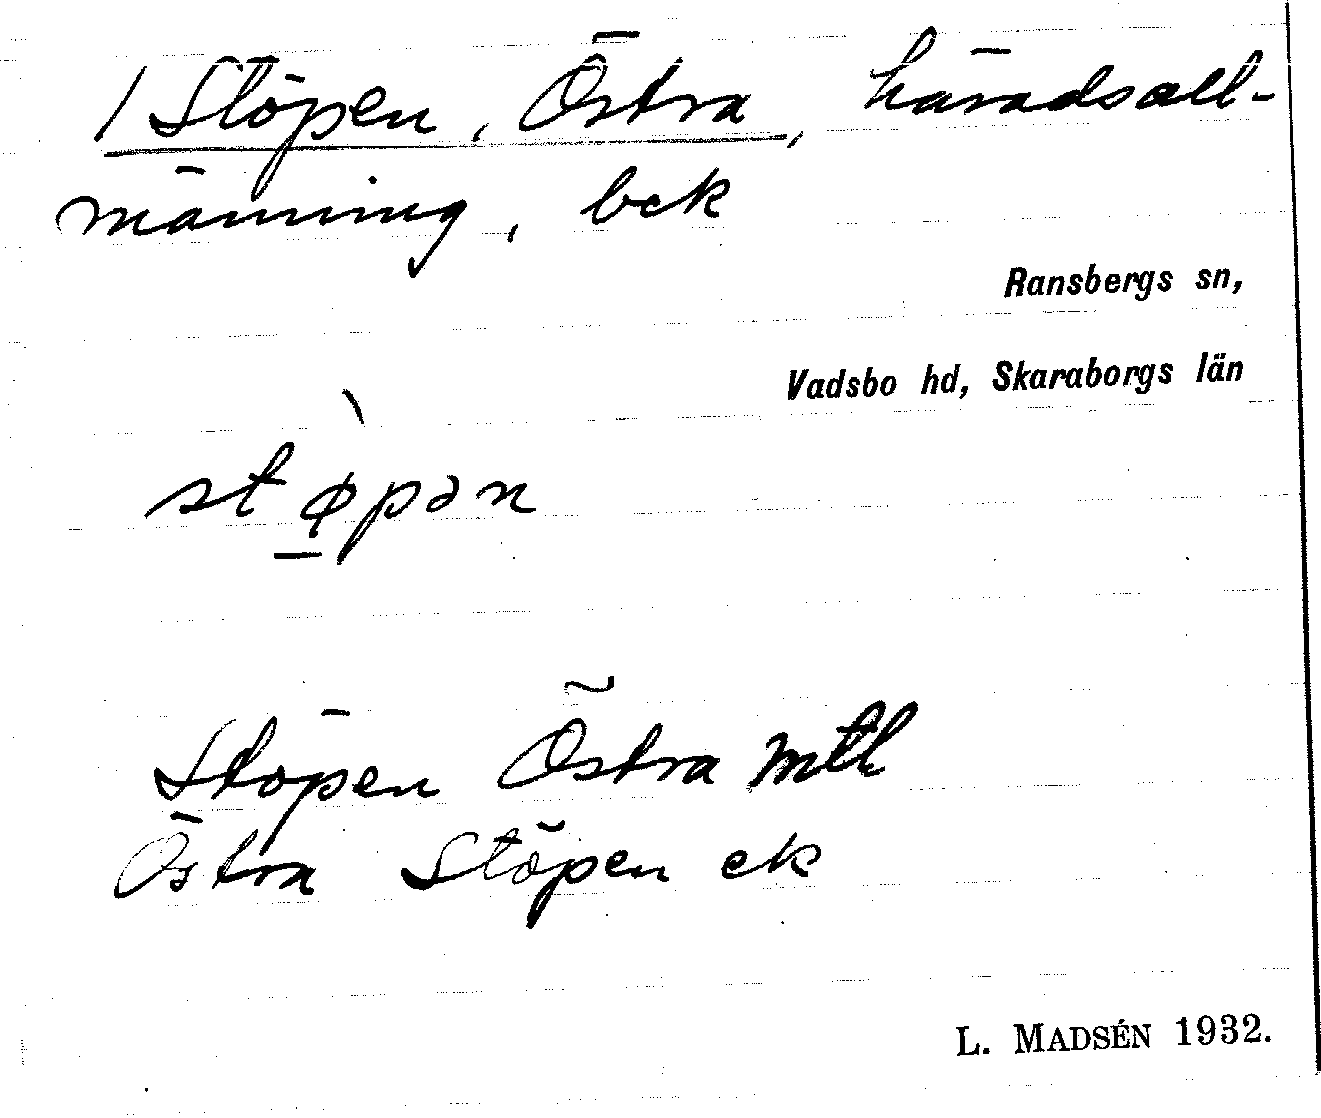 / Stöpen, Östra, häradsall-
männing, bek
Ransbergs sn,
Vadsbo hd, Skaraborgs län
stø̀pən
Stöpen Östra mtl
Östra Stöpen ek
L. MADSÉN 1932.